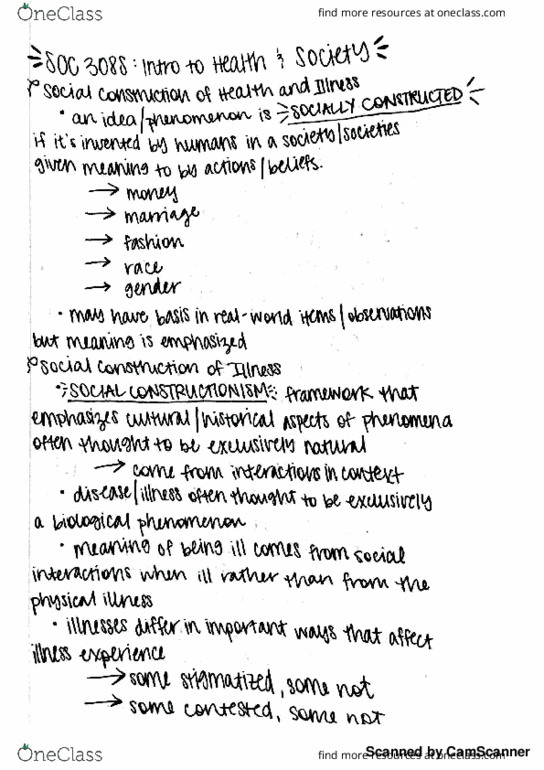 OneClass
find more resources at oneclass.com
SOC 308S: Intro to Health & Society
Social Construction of Health and Illness
• an idea/phenomenon is SOCIALLY CONSTRUCTED
if it's invented by humans in a society/societies
given meaning to by actions/beliefs.
→ money
→ marriage
→ fashion
→ race
→ gender
• may have basis in real-world items/observations
but meaning is emphasized
Social Construction of Illness
• SOCIAL CONSTRUCTIONISM: framework that
emphasizes cultural/historical aspects of phenomena
often thought to be exclusively natural
→ come from interactions in context
• disease/illness often thought to be exclusively
a biological phenomenon.
• meaning of being ill comes from social
interactions when ill rather than from the
physical illness
• illnesses differ in important ways that affect
illness experience
→ some stigmatized, some not
→ some contested, some not
OneClass
find more resources at oneclass.com
Scanned by CamScanner